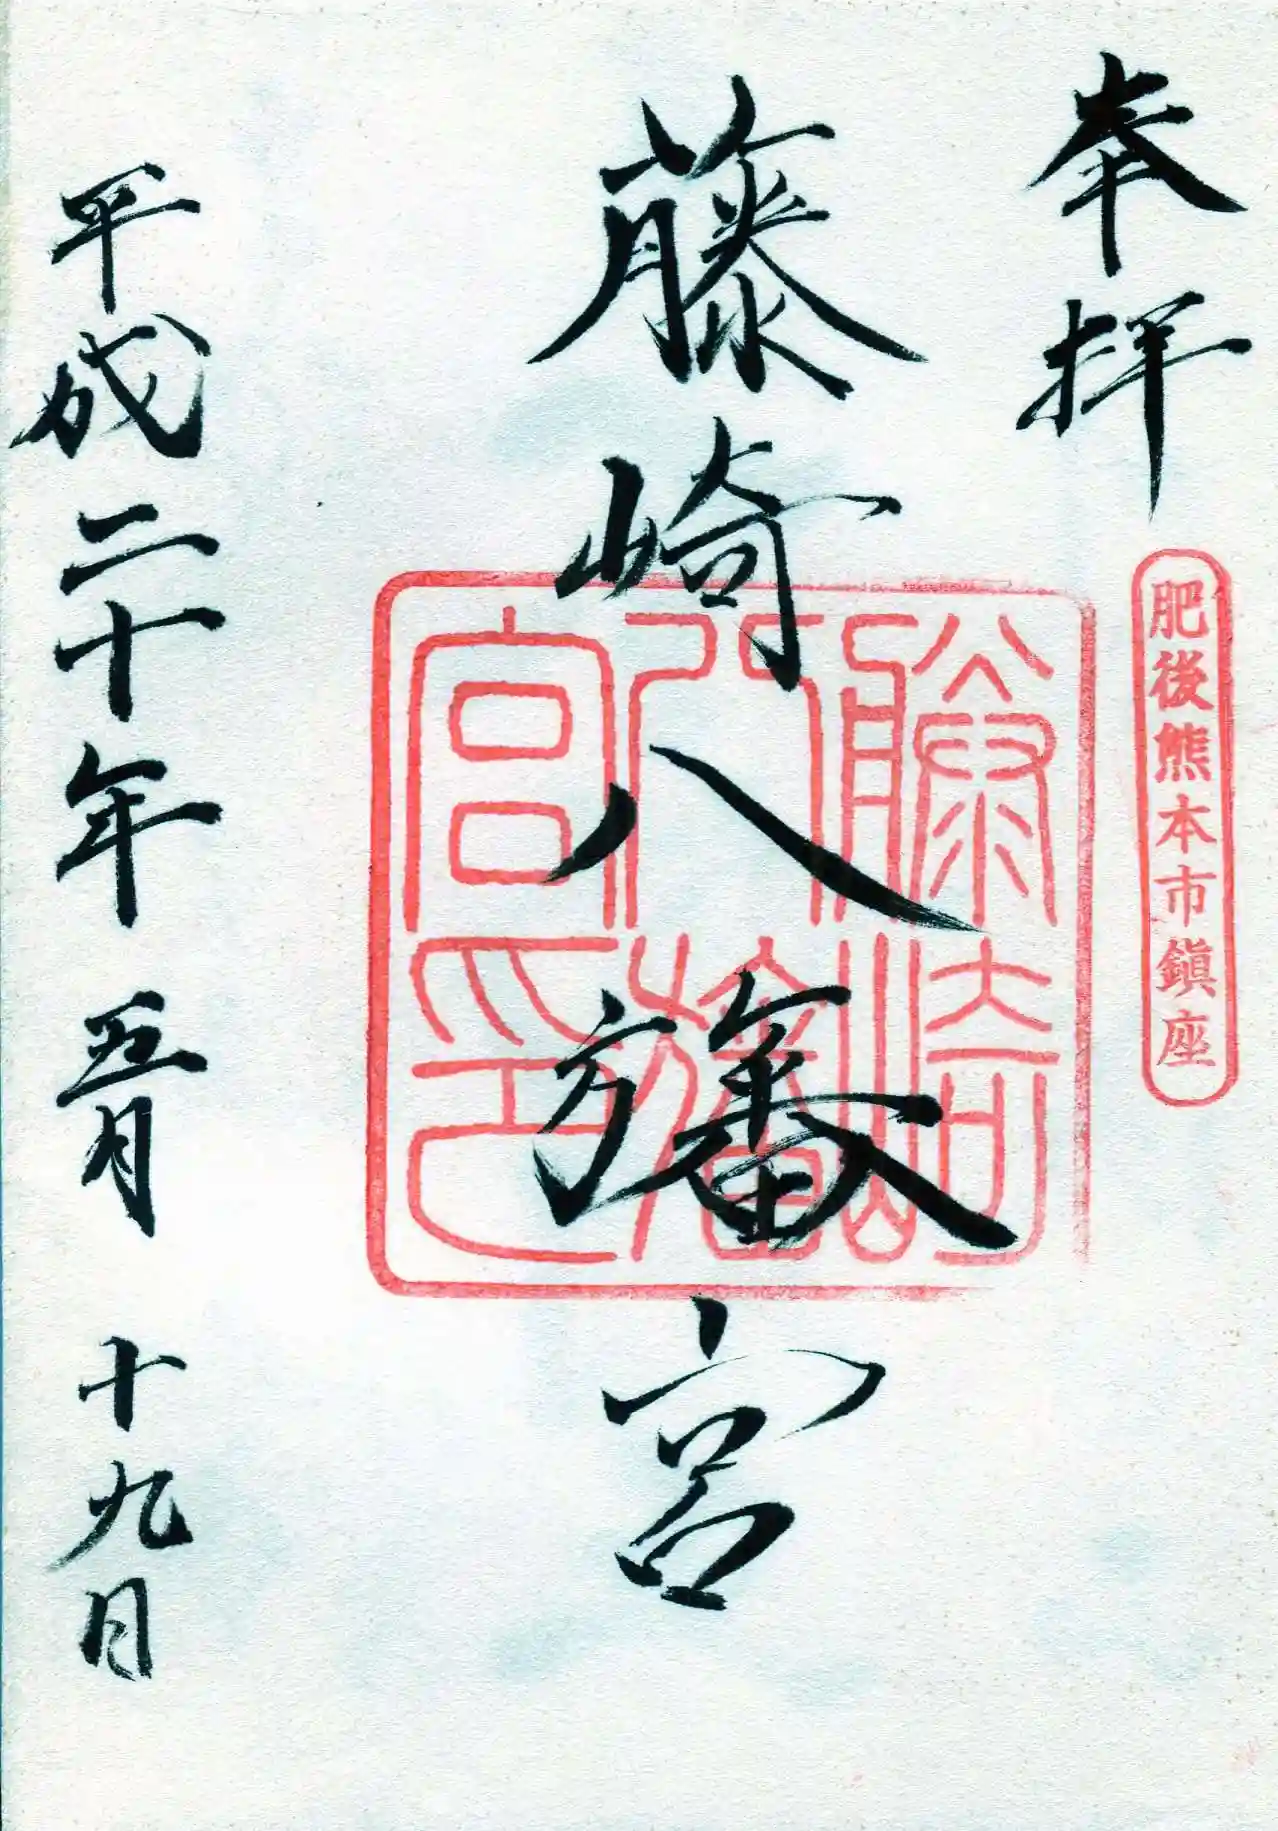 奉拝
肥後熊本市鎮座
藤崎八旛宮
藤崎八旛宮印
平成二十年五月十九日